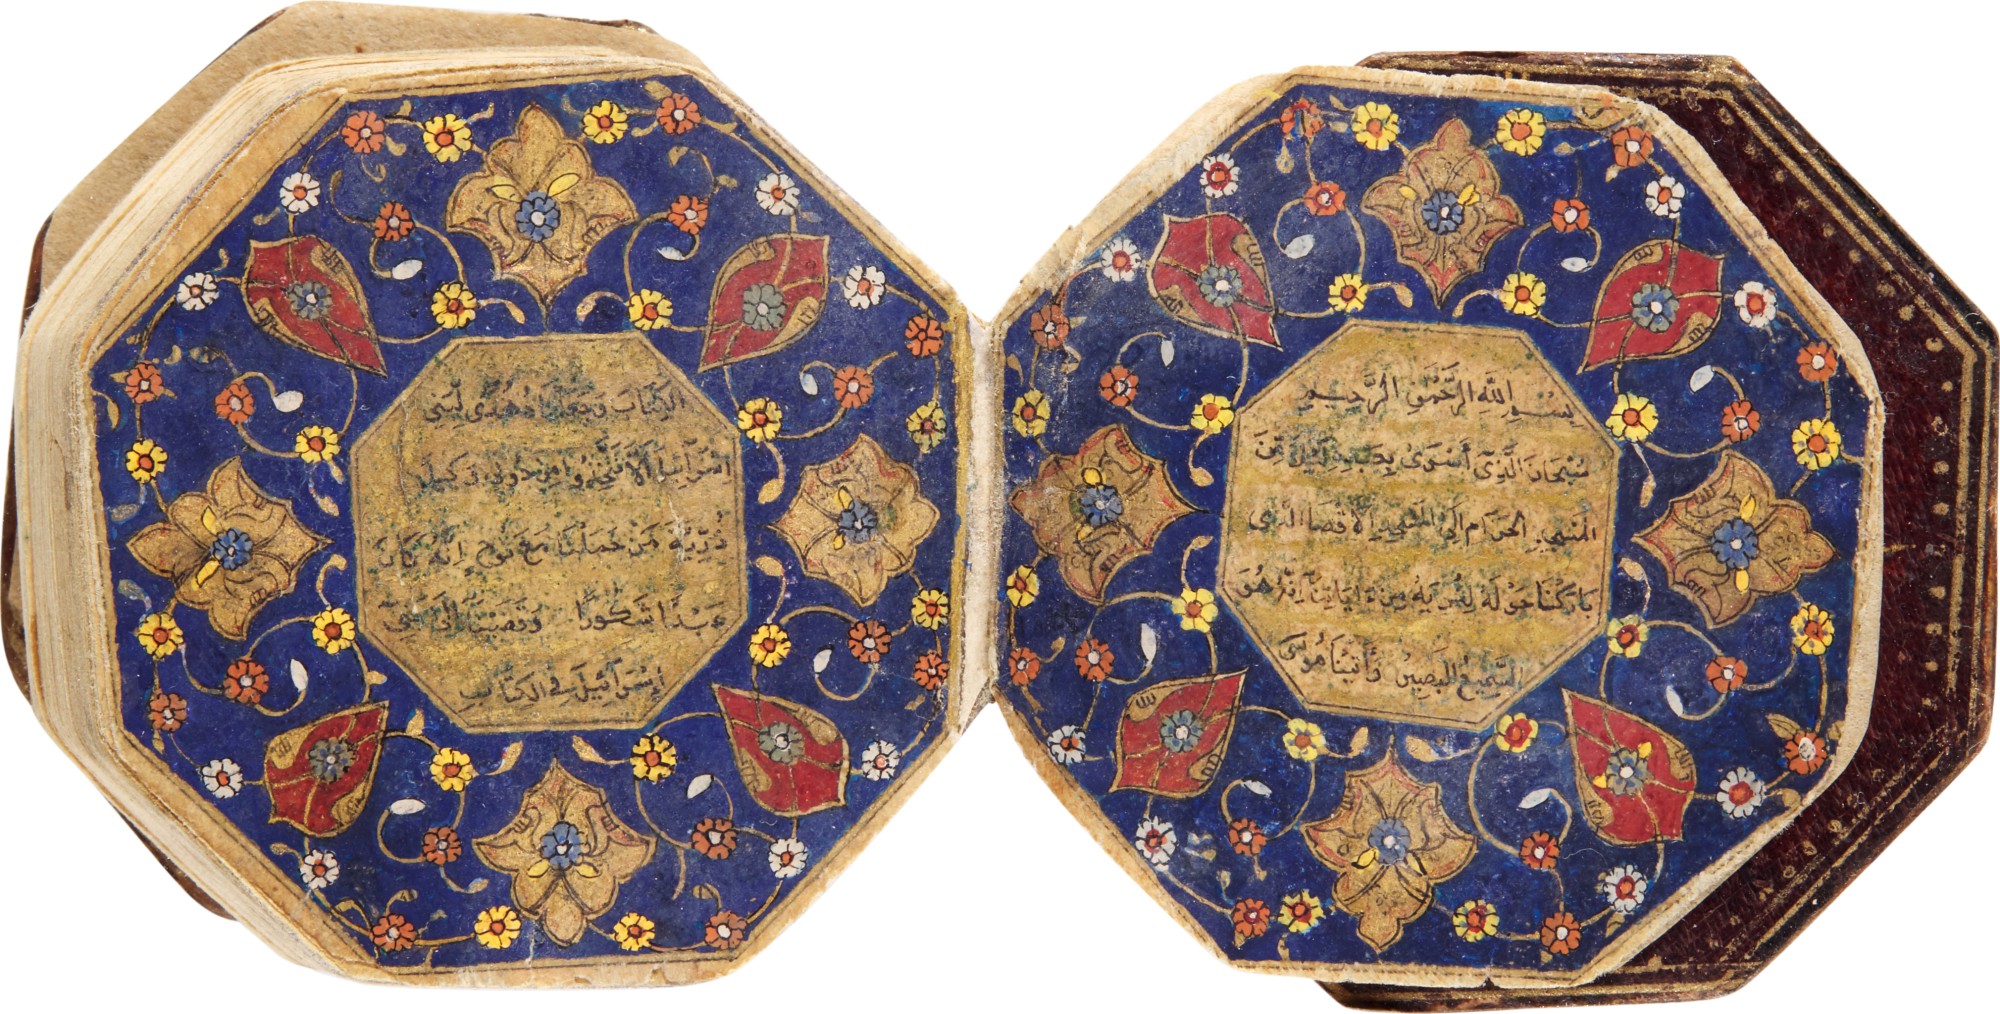 بِسْمِ اللهِ الرَّحْمٰنِ الرَّحِيمِ
سُبْحَانَ الَّذِى أَسْرَى بِعَبْدِهِ لَيْلًا مِنَ
الْمَسْجِدِ الْحَرَامِ إِلَى الْمَسْجِدِ الْأَقْصَا الَّذِى
بَارَكْنَا حَوْلَهُ لِنُرِيَهُ مِنْ ءَايَاتِنَا إِنَّهُ هُوَ
السَّمِيعُ الْبَصِيرُ وَأَتَيْنَا مُوسَى
الْكِتَابَ وَجَعَلْنَاهُ هُدًى لِبَنِى
إِسْرَآئِيلَ أَلَّا تَتَّخِذُوا مِنْ دُونِى وَكِيلًا
ذُرِّيَّةَ مَنْ حَمَلْنَا مَعَ نُوحٍ إِنَّهُ كَانَ
عَبْدًا شَكُورًا وَقَضَيْنَا إِلَى بَنِى
إِسْرَآئِيلَ فِى الْكِتَابِ